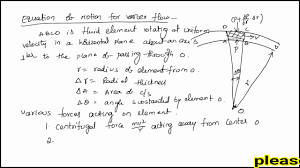 Equation of Motion for vortex flow -
ABCD is fluid element rotating at uniform
velocity in a horizontal plane about an axis
⊥ar to the plane of passing through O.
r = radius of element from O.
Δr = Radial thickness
ΔA = Area of c/s
Δθ = angle substanded by element O
Various forces acting on element.
1. Centrifugal force mv²/r acting away from center O
2.
pleas